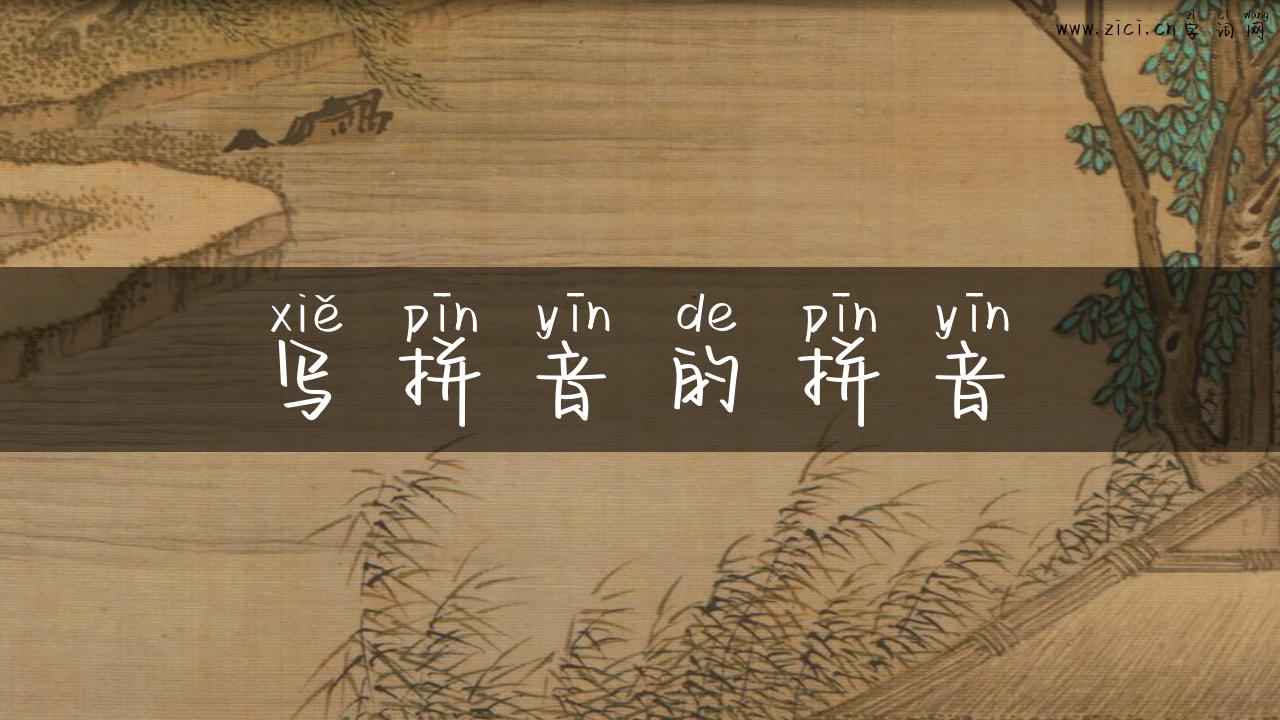 zì cí wǎng
www.zici.cn 字 词 网
xiě pīn yīn de pīn yīn
写 拼 音 的 拼 音